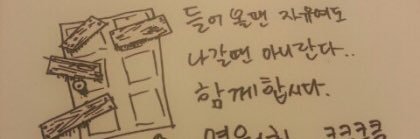 들어올땐 자유여도
나갈땐 아니란다..
함께합시다.
ㅋㅋㅋ